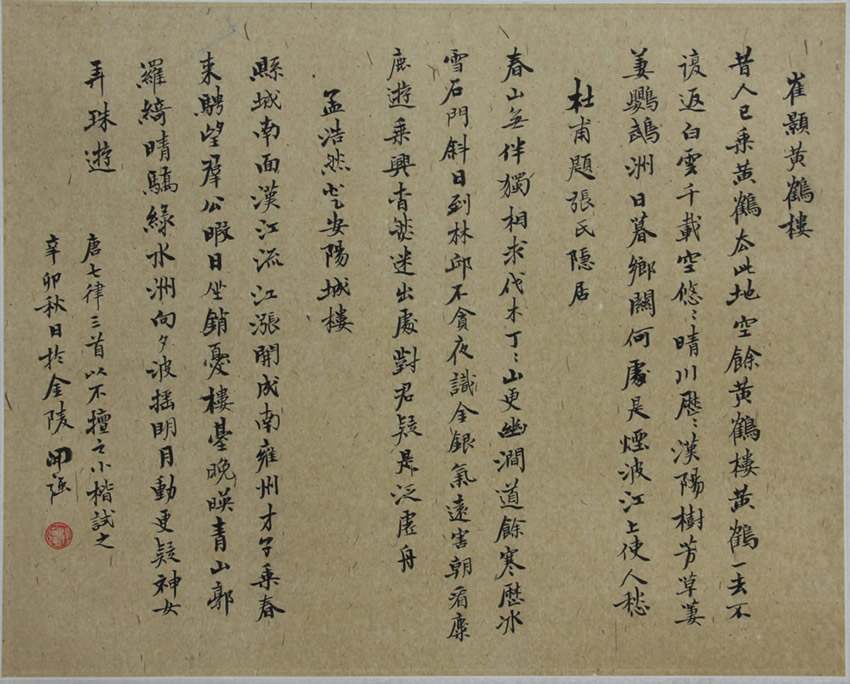 崔顥黃鶴樓
昔人已乘黃鶴去此地空餘黃鶴樓黃鶴一去不
復返白雲千載空悠〻晴川歷〻漢陽樹芳草萋
萋鸚鵡洲日暮鄉關何處是煙波江上使人愁
杜甫題張氏隱居
春山無伴獨相求伐木丁〻山更幽澗道餘寒歷冰
雪石門斜日到林邱不貪夜識金銀氣遠害朝看麋
鹿遊乘興杳然迷出處對君疑是泛虛舟
孟浩然登安陽城樓
縣城南面漢江流江漲開成南雍州才子乘春
來騁望群公暇日坐銷憂樓臺晚映青山郭
羅綺晴驕綠水洲向夕波搖明月動更疑神女
弄珠遊
唐七律三首以不擅之小楷試之
辛卯秋日於金陵